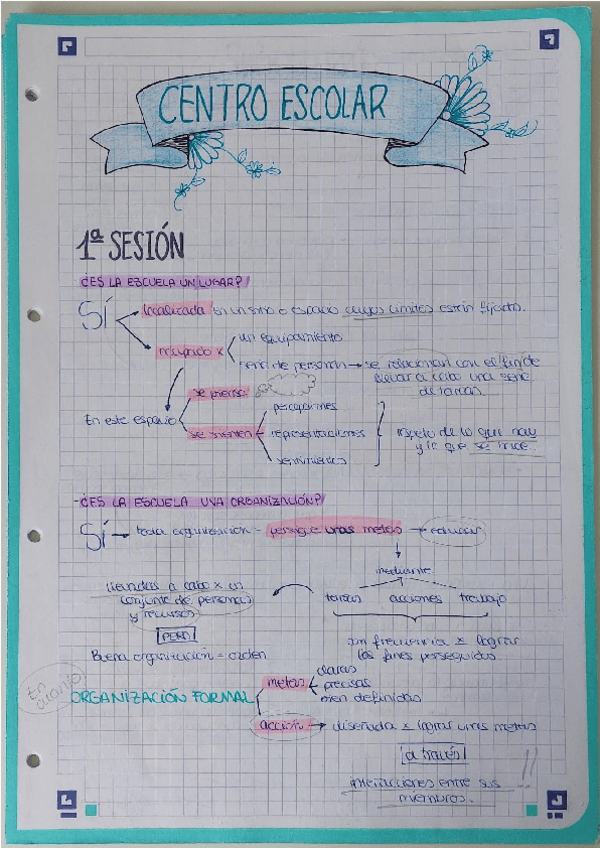 CENTRO ESCOLAR
1ª SESIÓN
¿ES LA ESCUELA UN LUGAR?
SÍ
localizada en un sitio o espacio cuyos límites están fijados.
ocupado x
un equipamiento
serie de personas → se relacionan con el fin de
llevar a cabo una serie
de tareas
En este espacio
se piensa
se sienten
percepciones
representaciones
sentimientos
respeto de lo que hay
y lo que se hace.
¿ES LA ESCUELA UNA ORGANIZACIÓN?
SÍ → toda organización = persigue unas metas → educar
mediante
tareas acciones trabajo
llevadas a cabo x un
conjunto de personas
y recursos
PERO
Buena organización = orden
con frecuencia x lograr
los fines perseguidos
En
ORGANIZACIÓN FORMAL
metas
claras
precisas
bien definidas
acción → diseñada x lograr unas metas
a través
interacciones entre sus
miembros.
!!